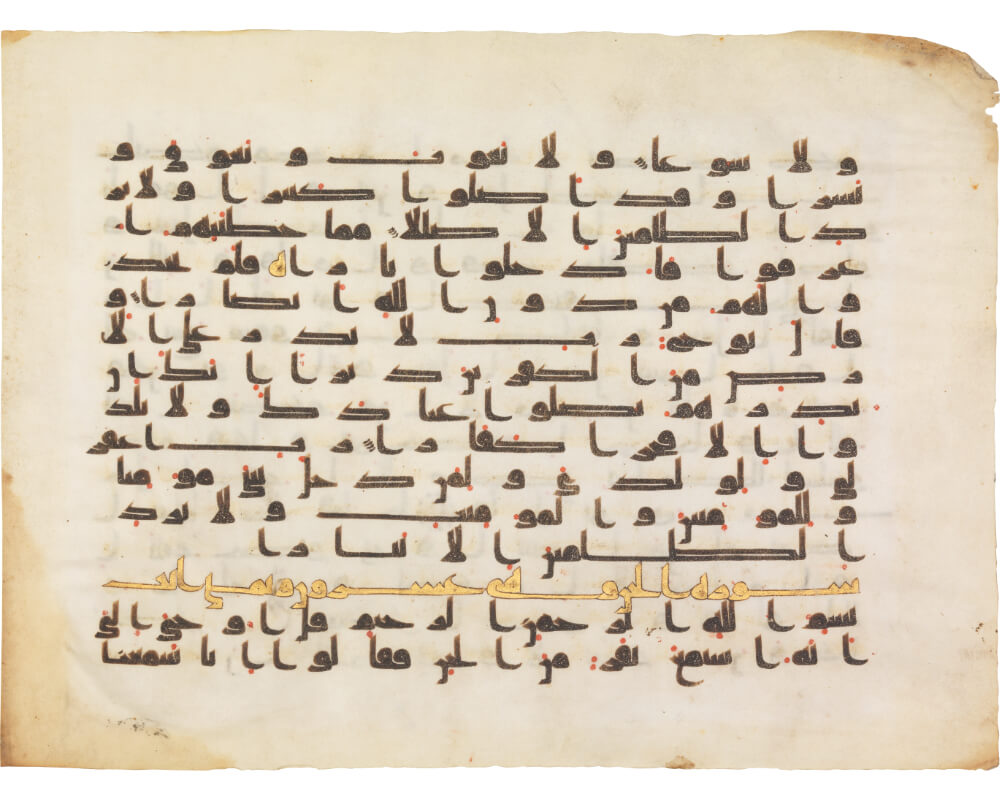 ولا سواعا ولا يغوث ويعوق و
نسرا وقد اضلوا كثيرا ولا تز
د الظلمين الا ضللا مما خطيتهم ا
غرقوا فادخلوا نارا فلم يجد
وا لهم من دون الله انصارا و
قال نوح رب لا تذر على الا
رض من الكفرين ديارا انك ان
تذرهم يضلوا عبادك ولا يلد
وا الا فجرا كفارا رب اغفر
لي ولولدي ولمن دخل بيتي مومنا
وللمومنين والمومنت ولا تزد
الظلمين الا تبارا
سورة الجن وهي عشرون وثمان ايات
بسم الله الرحمن الرحيم قل اوحي الي
انه استمع نفر من الجن فقالوا انا سمعنا